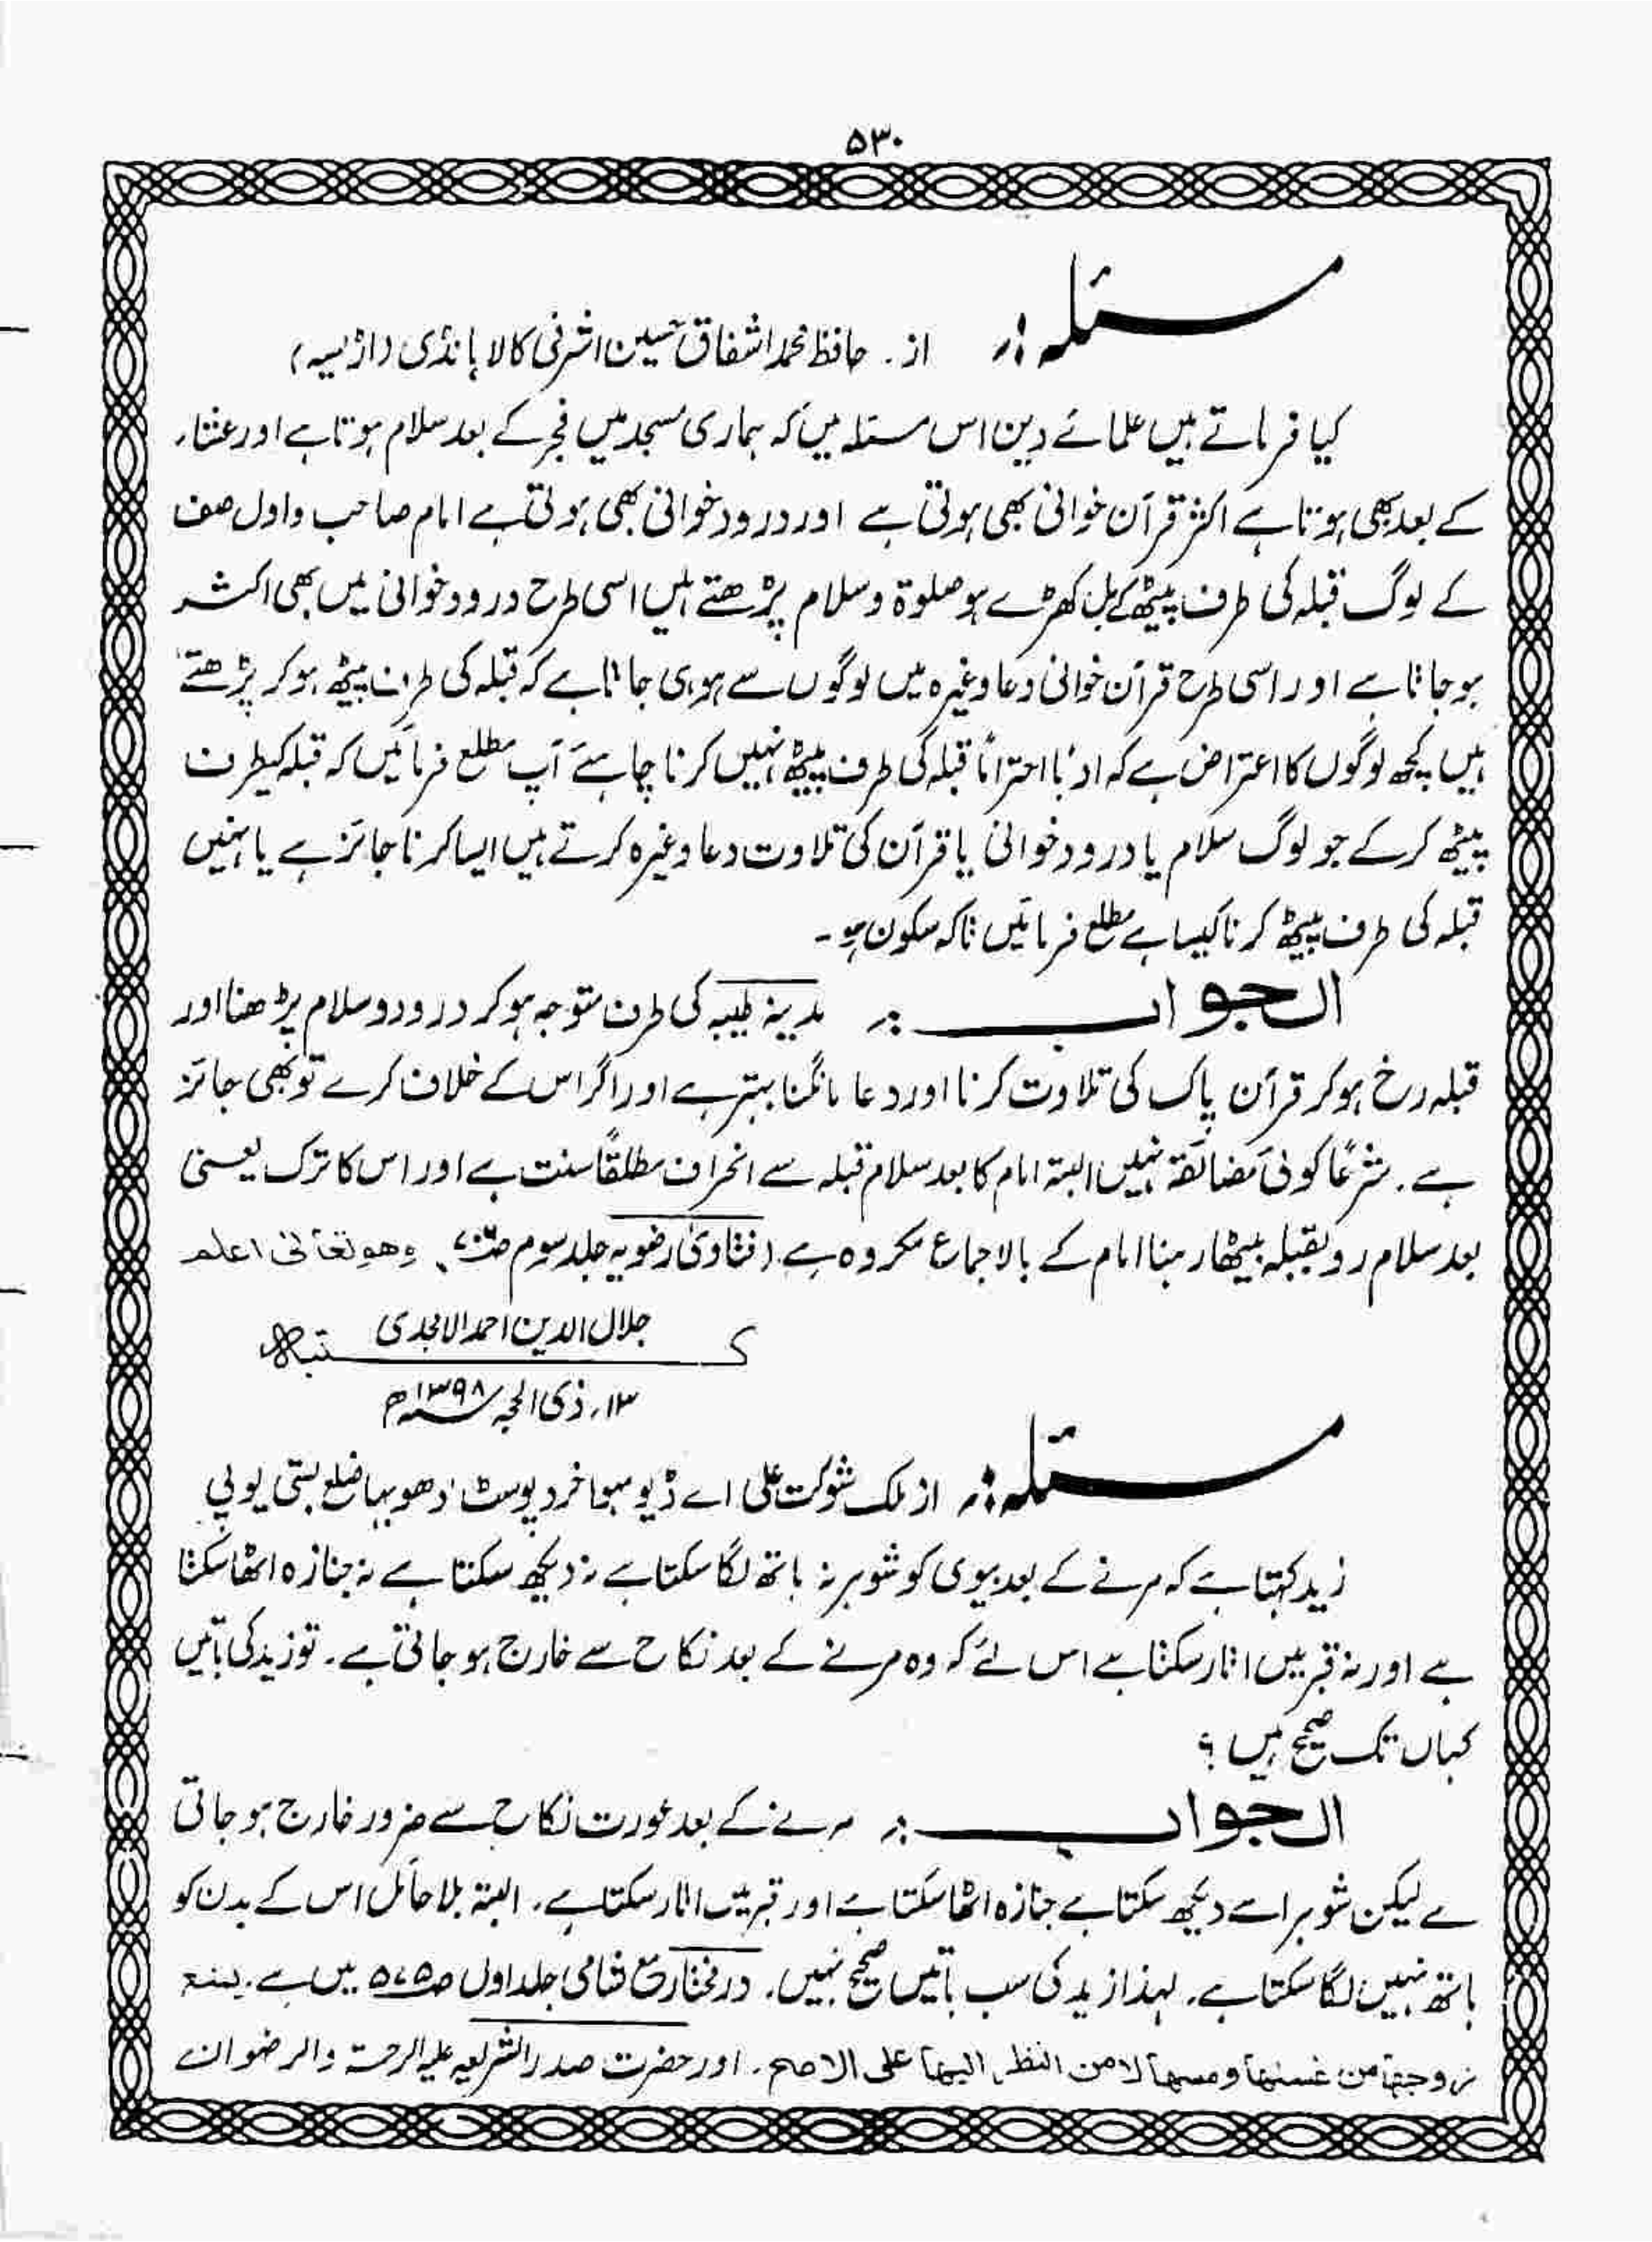 ۵۳۰
مسئلہ:۔ از۔ حافظ محمد اشفاق حسین اشرفی کالا ہانڈی (اڑیسہ)
کیا فرماتے ہیں علمائے دین اس مسئلہ میں کہ ہماری مسجد میں فجر کے بعد سلام ہوتا ہے اور عشاء
کے بعد بھی ہوتا ہے اکثر قرآن خوانی بھی ہوتی ہے اور درود خوانی بھی ہوتی ہے امام صاحب و اول صف
کے لوگ قبلہ کی طرف پیٹھ کے بل کھڑے ہو صلوٰۃ و سلام پڑھتے ہیں اسی طرح درود خوانی میں بھی اکثر
ہو جاتا ہے اور اسی طرح قرآن خوانی دعا وغیرہ میں لوگوں سے ہو ہی جاتا ہے کہ قبلہ کی طرف پیٹھ ہو کر پڑھتے
ہیں کچھ لوگوں کا اعتراض ہے کہ ادبًا احترامًا قبلہ کی طرف پیٹھ نہیں کرنا چاہئے آپ مطلع فرمائیں کہ قبلہ کیطرف
پیٹھ کر کے جو لوگ سلام یا درود خوانی یا قرآن کی تلاوت دعا وغیرہ کرتے ہیں ایسا کرنا جائز ہے یا نہیں
قبلہ کی طرف پیٹھ کرنا کیسا ہے مطلع فرمائیں تاکہ سکون ہو۔
الجواب:۔ مدینہ طیبہ کی طرف متوجہ ہو کر درود و سلام پڑھنا اور
قبلہ رخ ہو کر قرآن پاک کی تلاوت کرنا اور دعا مانگنا بہتر ہے اور اگر اس کے خلاف کرے تو بھی جائز
ہے۔ شرعًا کوئی مضائقہ نہیں البتہ امام کا بعد سلام قبلہ سے انحراف مطلقًا سنت ہے اور اس کا ترک یعنی
بعد سلام رو بقبلہ بیٹھا رہنا امام کے بالاجماع مکروہ ہے (فتاویٰ رضویہ جلد سوم وھو تعالیٰ اعلم
جلال الدین احمد الامجدی
کتبہ
۱۳؍ ذی الحجہ ۱۳۹۸ھ
مسئلہ:۔ از ملک شوکت علی اے ڈیو مہوا خرد پوسٹ دھوبہا ضلع بستی یوپی
زید کہتا ہے کہ مرنے کے بعد بیوی کو شوہر نہ ہاتھ لگا سکتا ہے نہ دیکھ سکتا ہے نہ جنازہ اٹھا سکتا
ہے اور نہ قبر میں اتار سکتا ہے اس لئے کہ وہ مرنے کے بعد نکاح سے خارج ہو جاتی ہے۔ تو زید کی باتیں
کہاں تک صحیح ہیں؟
الجواب:۔ مرنے کے بعد عورت نکاح سے ضرور خارج ہو جاتی
ہے لیکن شوہر اسے دیکھ سکتا ہے جنازہ اٹھا سکتا ہے اور قبر میں اتار سکتا ہے۔ البتہ بلا حائل اس کے بدن کو
ہاتھ نہیں لگا سکتا ہے۔ لہذا زید کی سب باتیں صحیح نہیں۔ در مختار مع شامی جلد اول ص۵۷۵ میں ہے۔ یمنع
زوجھا من غسلھا ومسھا لا من النظر الیھا علی الاصح۔ اور حضرت صدر الشریعہ علیہ الرحمۃ والرضوان